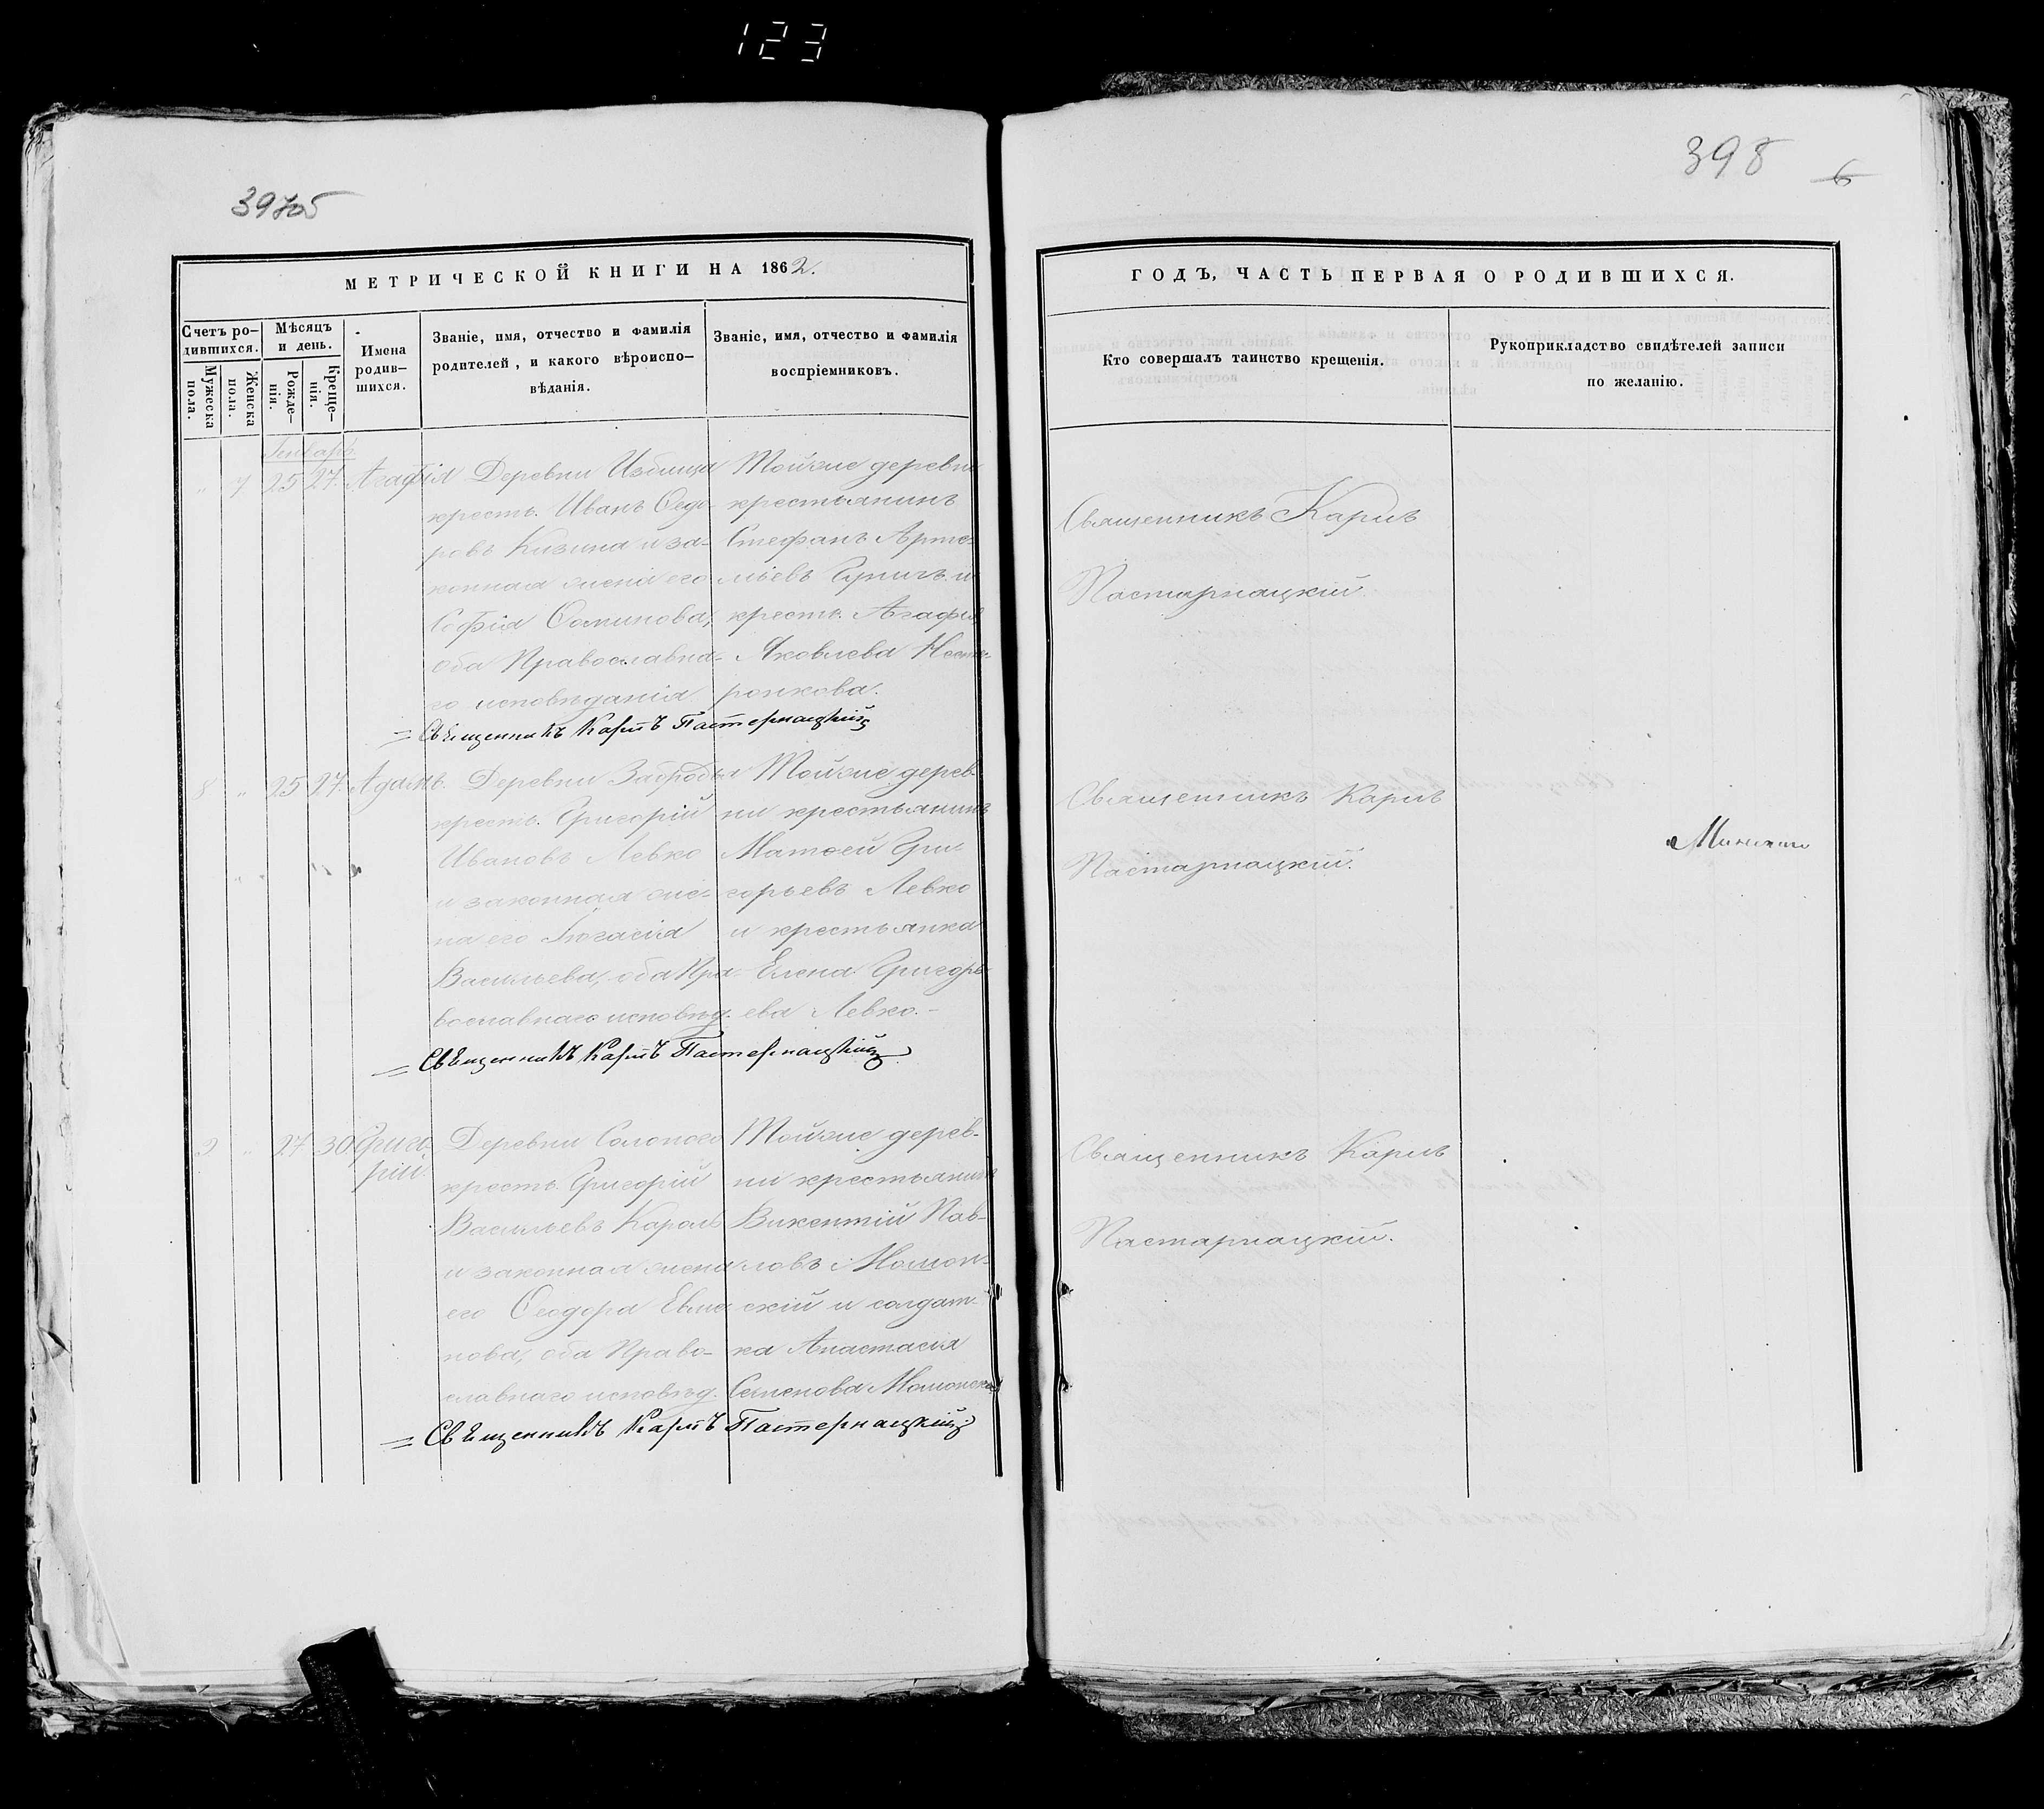 123
397 об
398
6
МЕТРИЧЕСКОЙ КНИГИ НА 1862.
ГОДЪ, ЧАСТЬ ПЕРВАЯ О РОДИВШИХСЯ.
Счетъ ро-
дившихся.
Мужеска
пола.
Женска
пола.
Мѣсяцъ
и день.
Рожде-
нія.
Креще-
нія.
Имена
родив-
шихся.
Званіе, имя, отчество и фамилія
родителей, и какого вѣроиспо-
вѣданія.
Званіе, имя, отчество и фамилія
воспріемниковъ.
Кто совершалъ таинство крещенія.
Рукоприкладство свидѣтелей записи
по желанію.
Январь.
" 7 25 27. Агафія
Деревни Избища
крест. Иванъ Ѳедо-
ровъ и за-
конная жена его
Софія
оба Православна-
го исповѣданія
Тойже деревни
крестьянинъ
Стефанъ Арте-
мьевъ и
крест. Агафія
Яковлева Несте-
ронкова.
Священникъ Карпъ
Пастарнацкій
= Священникъ Карпъ Пастернацкій
8 " 25 27. Адамъ.
Деревни Забродья
крест. Григорій
Ивановъ Левко
и законная же-
на его
Васильева, оба Пра-
вославнаго исповѣд.
Тойже дерев-
ни крестьянинъ
Матѳей Гри-
горьевъ Левко
и крестьянка
Елена Григорь-
ева Левко.-
Священникъ Карпъ
Пастарнацкій.
= Священникъ Карпъ Пастернацкій
9 " 27 30 Григо-
рій.
Деревни
крест. Григорій
Васильевъ Король
и законная жена
его Ѳеодора
нова, оба Право-
славнаго исповѣд.
Тойже дерев-
ни крестьянинъ
Викентій Пав-
ловъ
скій и солдат-
ка Анастасія
Семенова
Священникъ Карпъ
Пастарнацкій.
= Священникъ Карпъ Пастернацкій